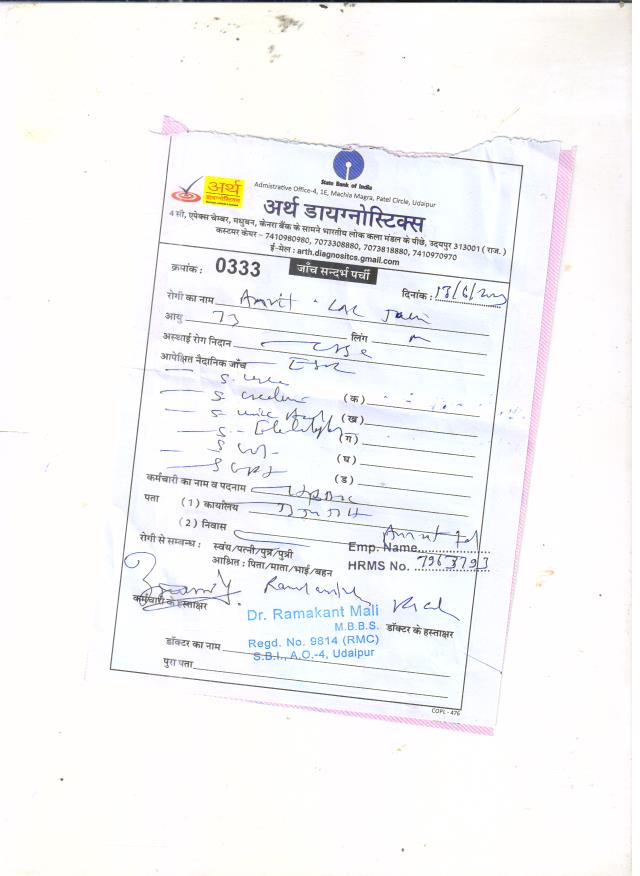 State Bank of India
Admistrative Office-4, 1E, Machla Magra, Patel Circle, Udaipur
अर्थ
डायग्नोस्टिक्स
अर्थ डायग्नोस्टिक्स
4 सी, एपेक्स चेम्बर, मधुबन, केनरा बैंक के सामने भारतीय लोक कला मंडल के पीछे, उदयपुर 313001 ( राज. )
कस्टमर केयर – 7410980980, 7073308880, 7073818880, 7410970970
ई-मेल : arth.diagnositcs.gmail.com
क्रमांक : 0333 जाँच सन्दर्भ पर्ची
रोगी का नाम Amrit Lal Jain दिनांक :
आयु 73 लिंग M
अस्थाई रोग निदान
आपेक्षित नैदानिक जाँच ESR
S. urea
S creatinine ( क )
S uric Acid ( ख )
S- Electrolytes ( ग )
( घ )
( ड )
कर्मचारी का नाम व पदनाम
पता ( 1 ) कार्यालय
( 2 ) निवास
रोगी से सम्बन्ध : स्वंय/पत्नी/पुत्र/पुत्री Emp. Name Amrit Lal
आश्रित : पिता/माता/भाई/बहन HRMS No. 7963793
कर्मचारी के हस्ताक्षर
Dr. Ramakant Mali
M.B.B.S. डॉक्टर के हस्ताक्षर
Regd. No. 9814 (RMC)
डॉक्टर का नाम S.B.I., A.O.-4, Udaipur
पुरा पता
COPL - 476